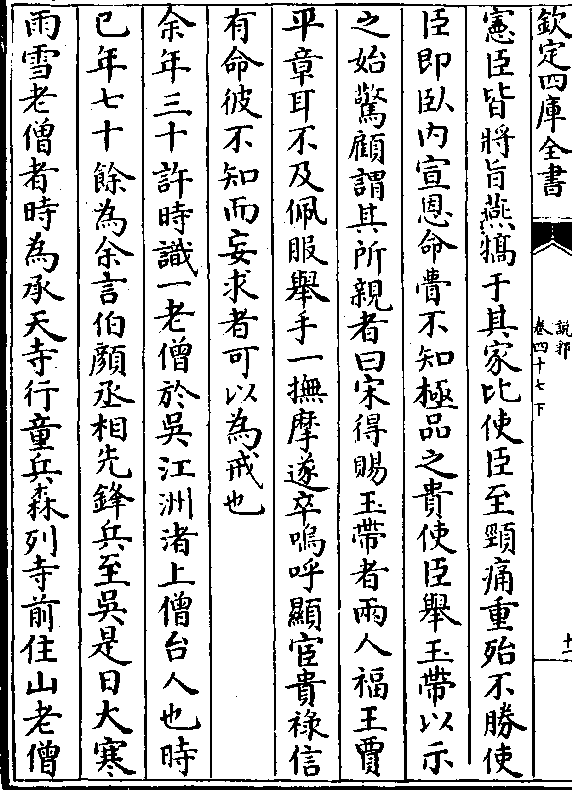 欽定四庫全書
說郛
卷四十七下
十二
憲臣皆將旨燕犒于其家比使臣至頸痛重殆不勝使
臣即臥内宣恩命瞢不知極品之貴使臣舉玉帶以示
之始驚顧謂其所親者曰宋得賜玉帶者兩人福王賈
平章耳不及佩服舉手一撫摩遂卒嗚呼顯宦貴祿信
有命彼不知而妄求者可以為戒也
余年三十許時識一老僧於吳江洲渚上僧台人也時
已年七十餘為余言伯顏丞相先鋒兵至吳是日大寒
雨雪老僧者時為承天寺行童兵森列寺前住山老僧